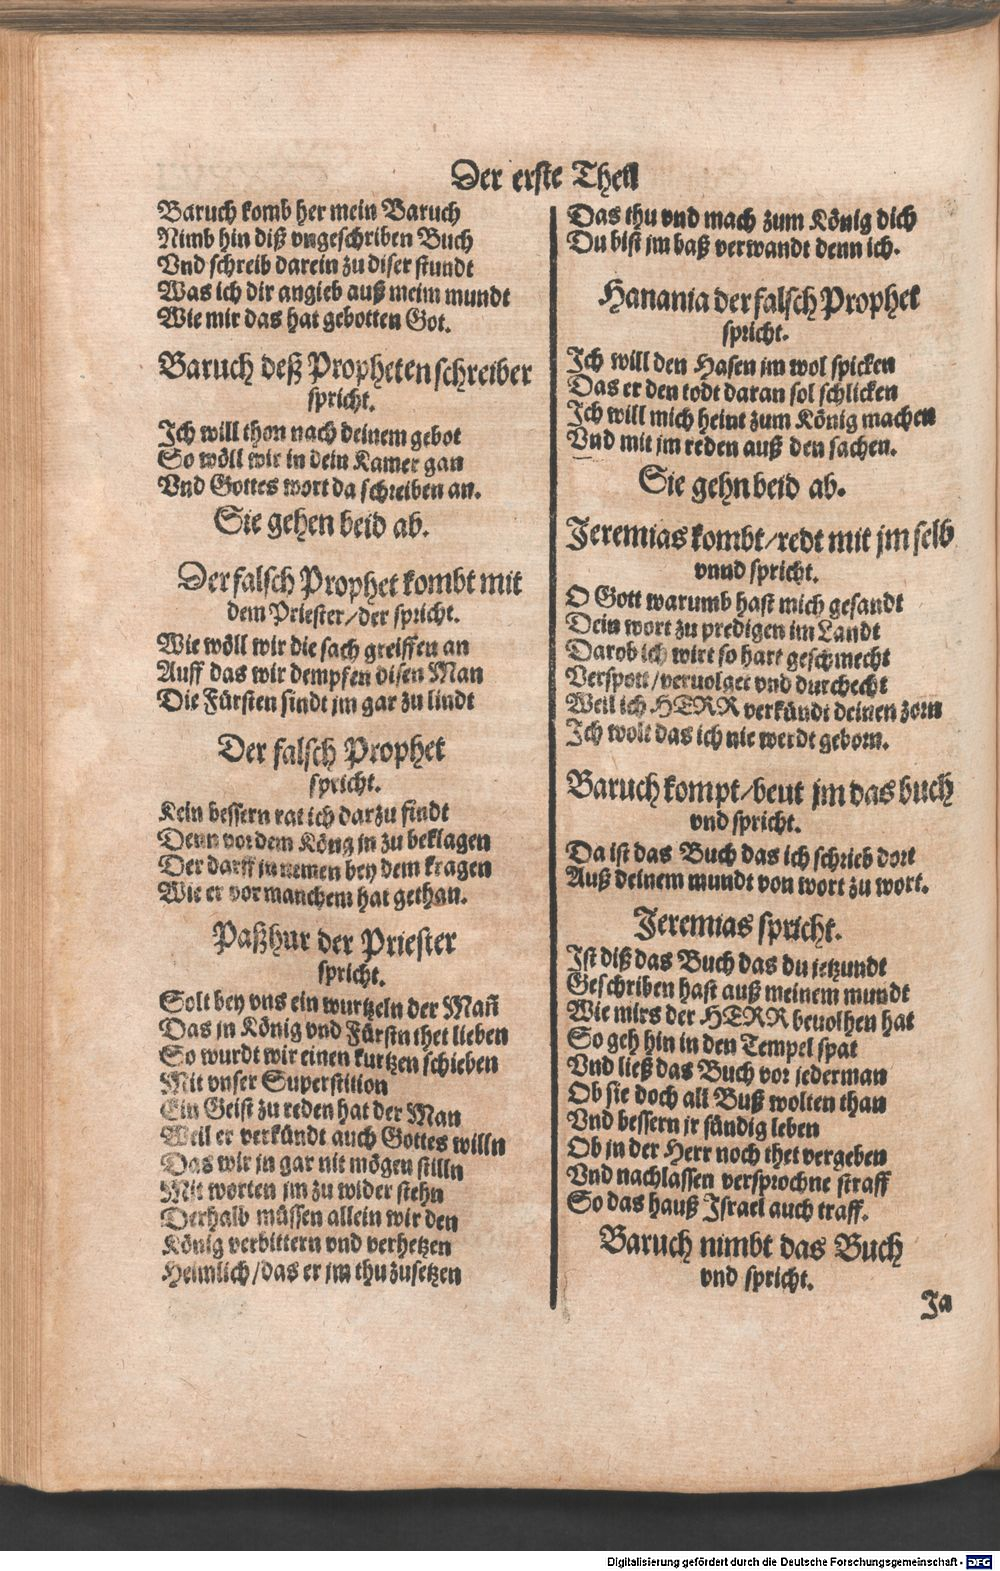 Der erste Theil
Baruch komb her mein Baruch
Nimb hin diß vngeschriben Buch
Vnd schreib darein zu diser stundt
Was ich dir angieb auß meim mundt
Wie mir das hat gebotten Got.
Baruch deß Propheten schreiber
spricht.
Ich will thon nach deinem gebot
So wöll wir in dein Kamer gan
Vnd Gottes wort da schreiben an.
Sie gehen beid ab.
Der falsch Prophet kombt mit
dem Priester/der spricht.
Wie wöll wir die sach greiffen an
Auff das wir dempfen disen Man
Die Fürsten sindt jm gar zu lindt
Der falsch Prophet
spricht.
Kein bessern rat ich darzu findt
Denn vor dem Köng jn zu beklagen
Der darff jn nemen bey dem kragen
Wie er vor manchem hat gethan.
Paßhur der Priester
spricht.
Solt bey vns ein wurtzeln der Mañ
Das jn König vnd Fürstn thet lieben
So wurdt wir einen kurtzen schieben
Mit vnser Superstition
Ein Geist zu reden hat der Man
Weil er verkündt auch Gottes willn
Das wir jn gar nit mögen stilln
Mit worten jm zu wider stehn
Derhalb müssen allein wir den
König verbittern vnd verhetzen
Heimlich/das er jm thu zusetzen
Das thu vnd mach zum König dich
Du bist jm baß verwandt denn ich.
Hanania der falsch Prophet
spricht.
Ich will den Hasen jm wol spicken
Das er den todt daran sol schlicken
Ich will mich heint zum König machen
Vnd mit jm reden auß den sachen.
Sie gehn beid ab.
Jeremias kombt/redt mit jm selb
vnnd spricht.
O Gott warumb hast mich gesandt
Dein wort zu predigen im Landt
Darob ich wirt so hart geschmecht
Verspott/veruolget vnd durchecht
Weil ich HERR verkündt deinen zorn
Ich wolt das ich nie werdt geborn.
Baruch kompt/beut jm das buch
vnd spricht.
Da ist das Buch das ich schrieb dort
Auß deinem mundt von wort zu wort.
Jeremias spricht.
Ist diß das Buch das du jetzundt
Geschriben hast auß meinem mundt
Wie mirs der HERR beuolhen hat
So geh hin in den Tempel spat
Vnd ließ das Buch vor jederman
Ob sie doch all Buß wolten than
Vnd bessern jr sündig leben
Ob jn der Herr noch thet vergeben
Vnd nachlassen versprochne straff
So das hauß Israel auch traff.
Baruch nimbt das Buch
vnd spricht.
Ja
Digitalisierung gefördert durch die Deutsche Forschungsgemeinschaft - DFG